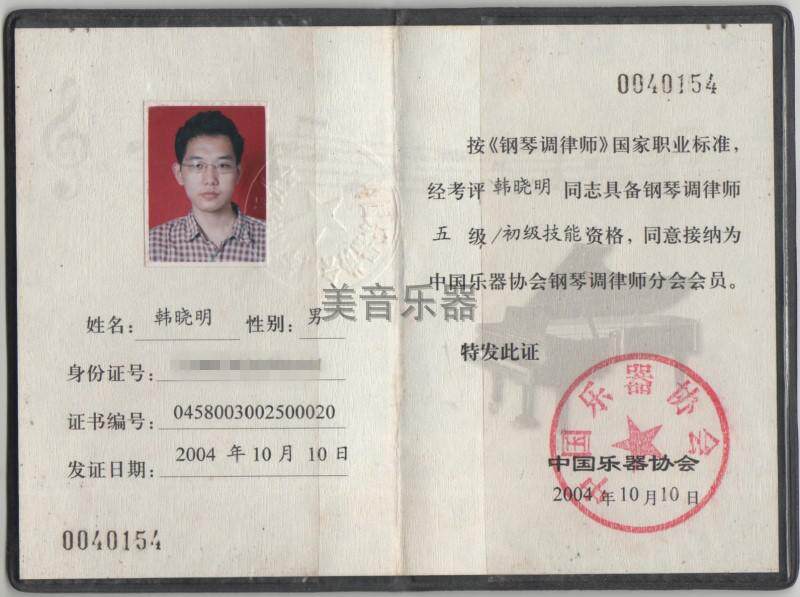 姓名：韩晓明 性别：男
身份证号：
证书编号：0458003002500020
发证日期：2004 年 10 月 10 日
0040154
美音乐器
0040154
按《钢琴调律师》国家职业标准，
经考评 韩晓明 同志具备钢琴调律师
五 级/初级技能 资格，同意接纳为
中国乐器协会钢琴调律师分会会员。
特发此证
中国乐器协会
中国乐器协会
2004 年 10 月 10 日